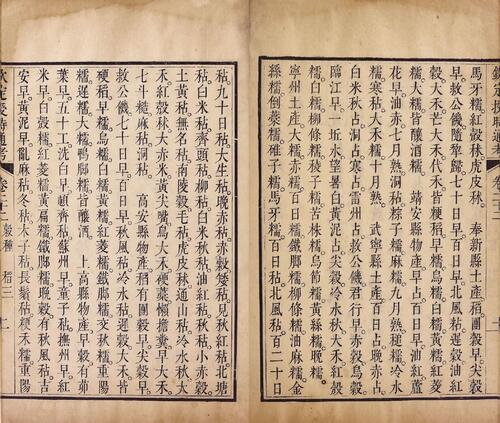 欽定授時通考
馬牙糯。紅穀秫。虎皮秫。 奉新縣物產稻。團穀早。尖穀
早。救公饑。隨犁歸。七十日早。百日早。北風秥。遲穀油紅
穀。大禾。芒大禾。代禾。皆粳稻。早糯。烏糯。白糯。黃糯。紅菱
糯。大糯。皆釀酒糯。 靖安縣物產早占。百日早。油紅。蘆
花早。油赤。七月熟。洞秥。粽子糯。麻糯。九月熟。糯。冷水
糯。寒秥。大禾糯。十月熟。 武寧縣土產百日占。晚赤占。
白米秋占。洞占。寒占。雷州占。救公饑。君行早。赤穀。烏穀。
臨江早。一坵水。望暑白。黃泥占。尖穀。冷水秋。大禾。紅穀
糯。白糯。柳條糯。稜子糯。苦株糯。烏節糯。黃絲糯。晚糯。
寧州土產大糯。赤糯。百日糯。鐵腳糯。柳條糯。油麻糯。金
絲糯。倒藁糯。稚子糯。馬牙糯。百日秥。北風秥。百二十日
秥。九十日秥。大生秥。晚赤秥。赤穀矮秥。見秋紅秥。北塘
秥。白米秥。齊頭秥。柳秥。白米秋秥。油紅秥。秋秥。小赤穀。
土黃秥。無名秥。南陵穀。毛秥。虎皮秥。通山秥。冷水秋。大
禾。紅穀秫。大赤米。黃尖嘴。烏大禾。粳。懶擔糞。早大禾。
七斗糙。麻秥。洞秥。 高安縣物產稻有團穀早。尖穀早。
救公饑。七十日早。百日早。秋風秥。冷水秥。遲穀。大禾。皆
硬稻。早糯。烏糯。白糯。黃糯。紅菱糯。鐵腳糯。交秋糯。重陽
糯。遲糯。大糯。鴨腳糯。皆釀酒。 上高縣物產早穀有茆
葉早。五十工。洗白早。頓齊秥。蘇州早。童子秥。撫州早。紅
米早。白穀糯。紅菱糯。黃扁糯。鐵腳糯。晚穀有秋風秥。吉
安早。黃泥早。亂麻秥。冬秥。大子秥。長鬚秥。粳禾糯。重陽
欽定授時通考 卷二十二 穀種 稻三